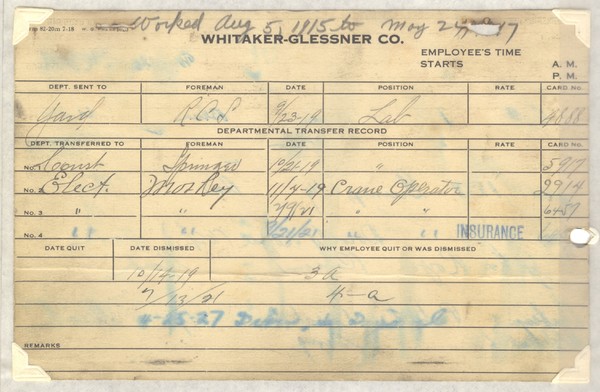 Worked Aug 5, 1915 to May 24, 1917
WHITAKER-GLESSNER CO.
EMPLOYEE'S TIME
STARTS
A. M.
P. M.
DEPT. SENT TO FOREMAN DATE POSITION RATE CARD NO.
Yard R.C.S. 9/23-19 Lab 4888
DEPARTMENTAL TRANSFER RECORD
DEPT. TRANSFERRED TO FOREMAN DATE POSITION RATE CARD NO.
No. 1 10/21-19 " 5917
No. 2 Elect. 11/4-19 Crane Operator 2914
No. 3 " " " " 6457
No. 4 " " " " INSURANCE
DATE QUIT DATE DISMISSED WHY EMPLOYEE QUIT OR WAS DISMISSED
10/14-19 3a
7/13/21 4-a
REMARKS